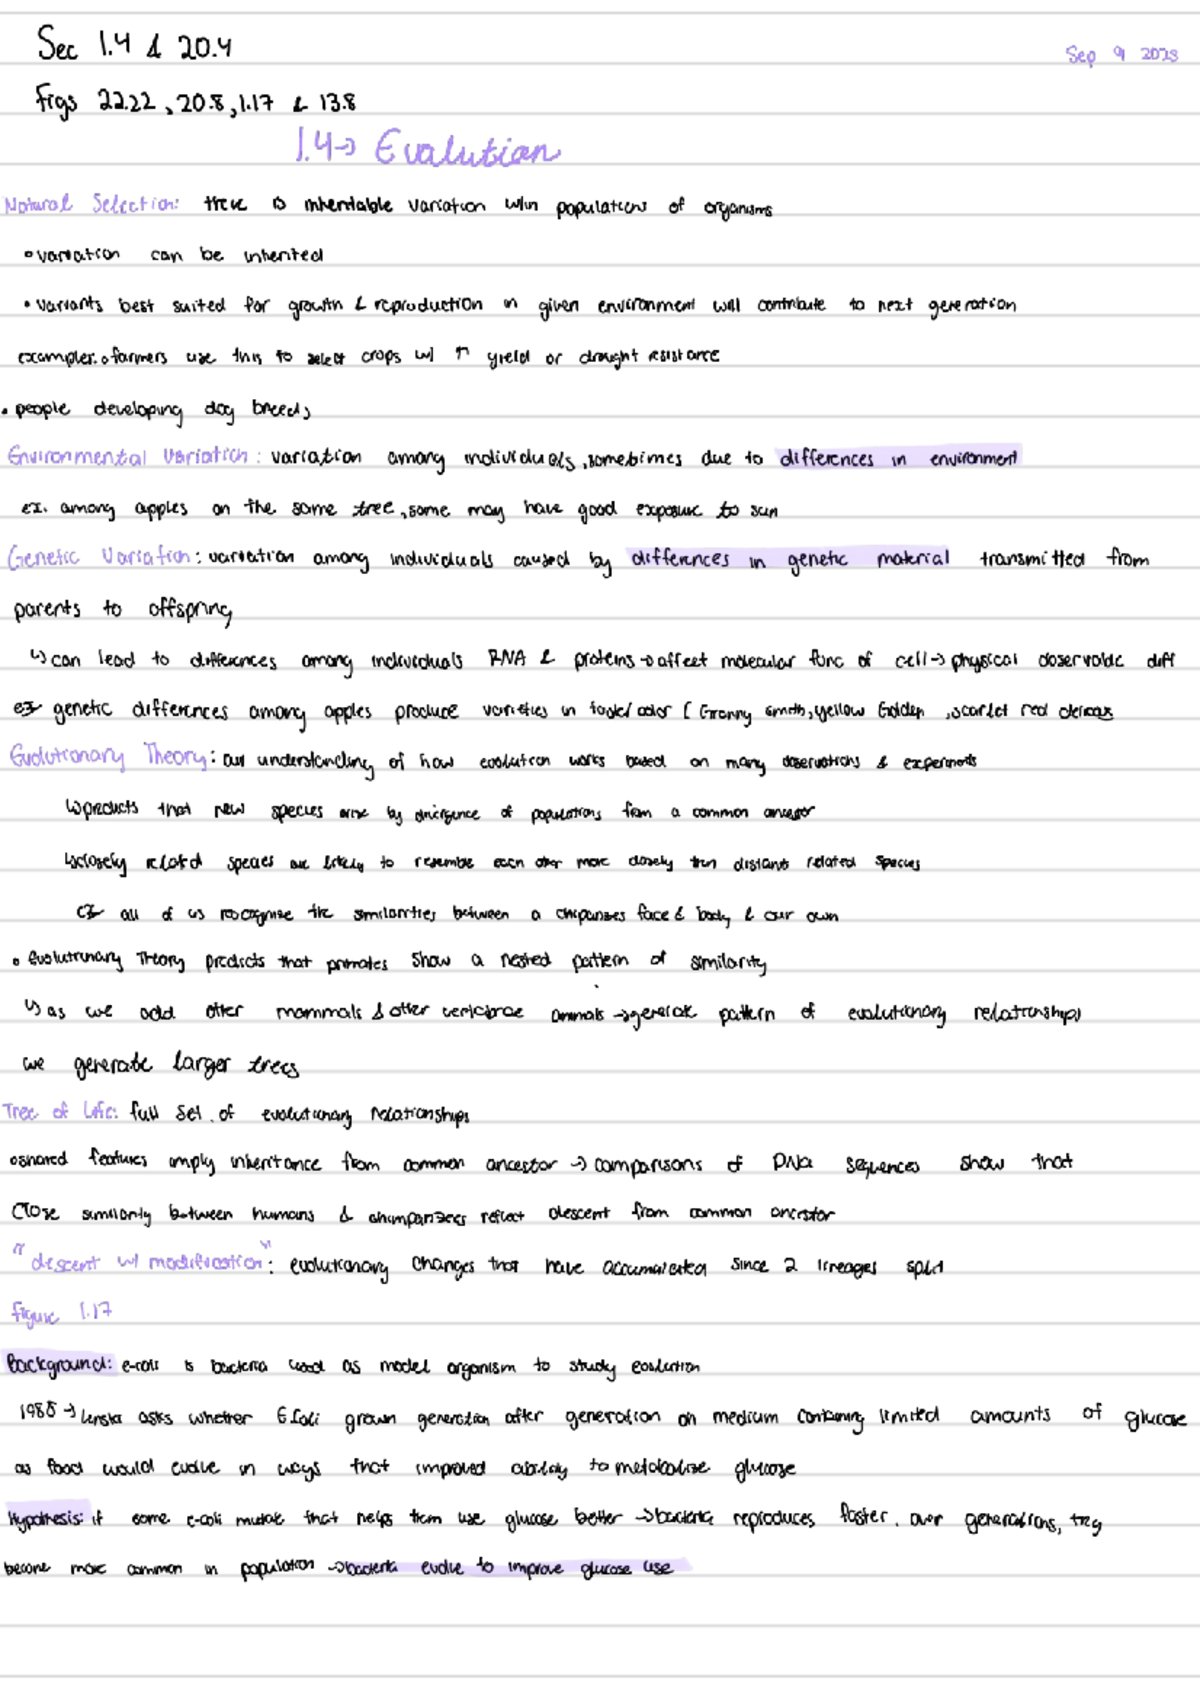 Sec 1.4 & 20.4
Sep 9 2025
Figs 22.22, 20.8, 1.17 & 13.8
1.4→ Evolution
Natural Selection: there is inheritable variation w/in populations of organisms
• variation can be inherited
• variants best suited for growth & reproduction in given environment will contribute to next generation
examples: • farmers use this to select crops w/ ↑ yield or drought resistance
• people developing dog breeds
Environmental Variation: variation among individuals, sometimes due to differences in environment
ex. among apples on the same tree, some may have good exposure to sun
Genetic Variation: variation among individuals caused by differences in genetic material transmitted from
parents to offspring
↳ can lead to differences among individuals RNA & proteins → affect molecular func of cell → physical observable diff
ex genetic differences among apples produce varieties in taste/color (Granny Smith, yellow Golden, scarlet red
Evolutionary Theory: our understanding of how evolution works based on many observations & experiments
↳ predicts that new species arise by divergence of populations from a common ancestor
↳ closely related species are likely to resemble each other more closely than distant related species
ex all of us recognize the similarities between a chipanzes face & body & our own
• Evolutionary Theory predicts that primates show a nested pattern of similarity
↳ as we add other mammals & other vertebrae animals → generate pattern of evolutionary relationships
we generate larger trees
Tree of Life: full set of evolutionary relationships
• shared features imply inheritance from common ancestor → comparisons of DNA sequences show that
close similarity between humans & chimpanzees reflect descent from common ancestor
"descent w/ modification": evolutionary changes that have accumulated since 2 lineages split
Figure 1.17
Background: e-coli is bacteria used as model organism to study evolution
1988 → Lenski asks whether E.Coli grown generation after generation on medium containing limited amounts of glucose
as food would evolve in ways that improved ability to metabolize glucose
Hypothesis: if some e-coli mutate that helps them use glucose better → bacteria reproduces faster. over generations, they
become more common in population → bacteria evolve to improve glucose use